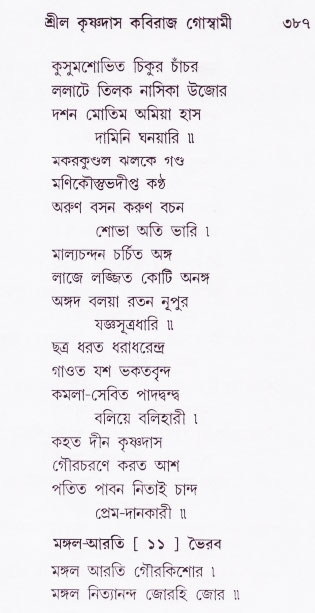 শ্রীল কৃষ্ণদাস কবিরাজ গোস্বামী ৩৮৭
কুসুমশোভিত চিকুর চাঁচর
ললাটে তিলক নাসিকা উজোর
দশন মোতিম অমিয়া হাস
দামিনি ঘনয়ারি ॥
মকরকুণ্ডল ঝলকে গণ্ড
মণিকৌস্তুভদীপ্ত কণ্ঠ
অরুণ বসন করুণ বচন
শোভা অতি ভারি ।
মাল্যচন্দন চর্চিত অঙ্গ
লাজে লজ্জিত কোটি অনঙ্গ
অঙ্গদ বলয়া রতন নূপুর
যজ্ঞসূত্রধারি ॥
ছত্র ধরত ধরাধরেন্দ্র
গাওত যশ ভকতবৃন্দ
কমলা-সেবিত পাদদ্বন্দ্ব
বলিয়ে বলিহারী ।
কহত দীন কৃষ্ণদাস
গৌরচরণে করত আশ
পতিত পাবন নিতাই চান্দ
প্রেম-দানকারী ॥
মঙ্গল-আরতি [ ১১ ] ভৈরব
মঙ্গল আরতি গৌরকিশোর ।
মঙ্গল নিত্যানন্দ জোরহি জোর ॥